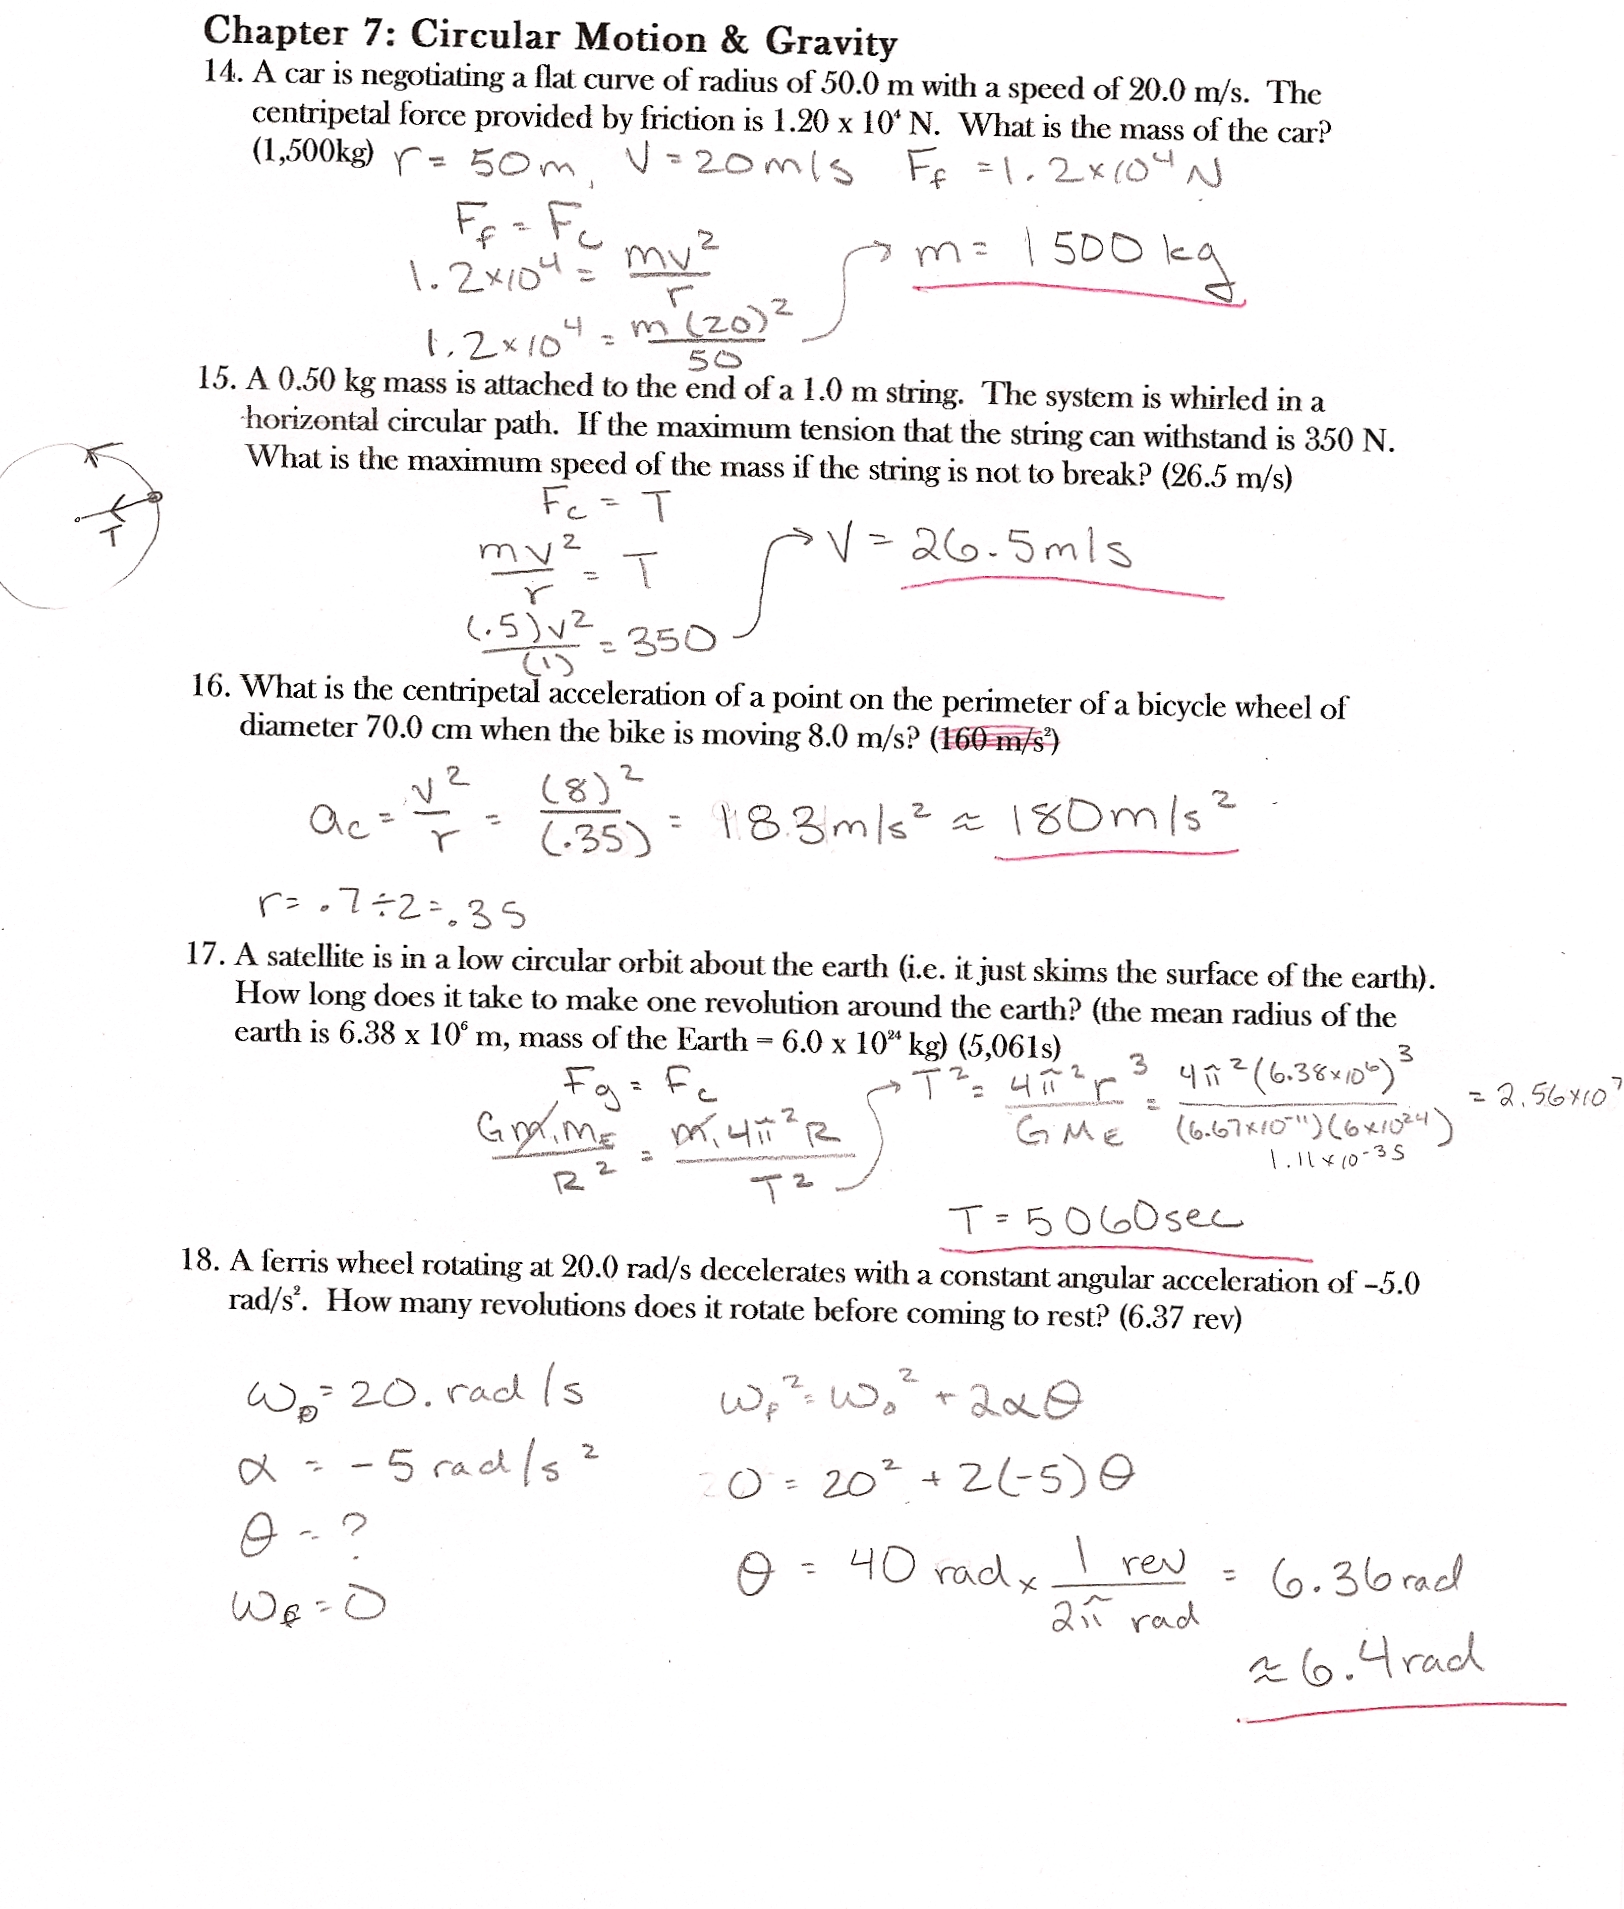 Chapter 7: Circular Motion & Gravity
14. A car is negotiating a flat curve of radius of 50.0 m with a speed of 20.0 m/s. The
centripetal force provided by friction is 1.20 x 10⁴ N. What is the mass of the car?
(1,500kg) r = 50m, V = 20m/s F_f = 1.2×10⁴ N
F_f = F_c
1.2×10⁴ = mv²/r
m = 1500 kg
1.2×10⁴ = m(20)²/50
15. A 0.50 kg mass is attached to the end of a 1.0 m string. The system is whirled in a
horizontal circular path. If the maximum tension that the string can withstand is 350 N.
What is the maximum speed of the mass if the string is not to break? (26.5 m/s)
T
F_c = T
mv²/r = T
V = 26.5m/s
(.5)v²/(1) = 350
16. What is the centripetal acceleration of a point on the perimeter of a bicycle wheel of
diameter 70.0 cm when the bike is moving 8.0 m/s? (160 m/s²)
a_c = v²/r = (8)²/(.35) = 183m/s² ≈ 180m/s²
r = .7÷2 = .35
17. A satellite is in a low circular orbit about the earth (i.e. it just skims the surface of the earth).
How long does it take to make one revolution around the earth? (the mean radius of the
earth is 6.38 x 10⁶ m, mass of the Earth = 6.0 x 10²⁴ kg) (5,061s)
F_g = F_c
Gm₁M_E/R² = m₁4π²R/T²
T² = 4π²r³/GM_E = 4π²(6.38×10⁶)³/(6.67×10⁻¹¹)(6×10²⁴) = 2.56×10⁷
1.11×10⁻³⁵
T = 5060sec
18. A ferris wheel rotating at 20.0 rad/s decelerates with a constant angular acceleration of –5.0
rad/s². How many revolutions does it rotate before coming to rest? (6.37 rev)
ω₀ = 20. rad/s
ω_f² = ω₀² + 2αθ
α = -5 rad/s²
0 = 20² + 2(-5)θ
θ = ?
θ = 40 rad × 1 rev/2π rad = 6.36 rad
ω_f = 0
≈ 6.4 rad